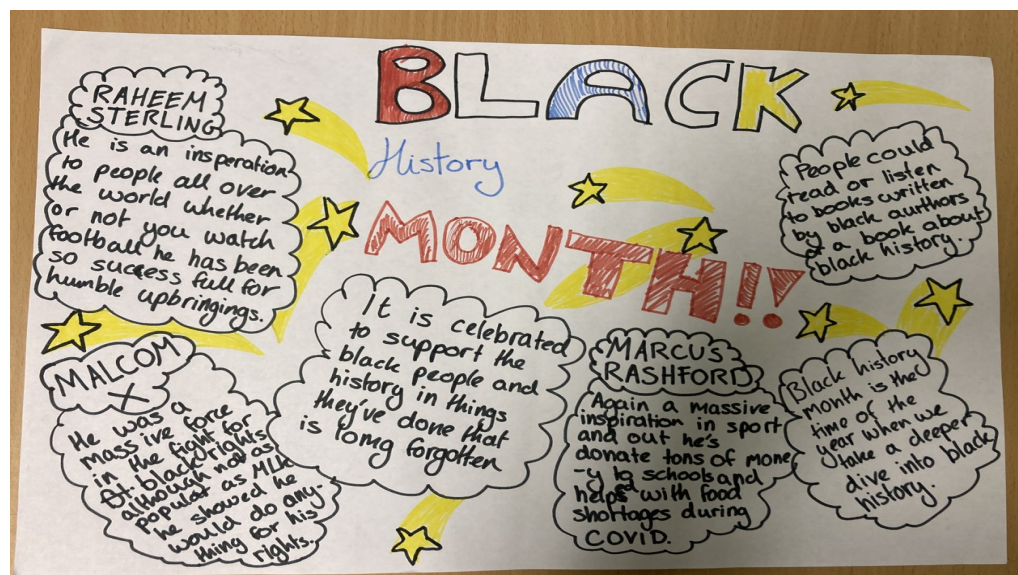 BLACK
History
MONTH!!
RAHEEM
STERLING
He is an insperation
to people all over
the world whether
or not you watch
football he has been
so success full for
humble upbringings.
MALCOM
X
He was a
massive force
in the fight for
black rights
although not as
populat as MLK
he showed he
would do any-
thing for his
rights.
It is celebrated
to support the
black people and
history in things
they've done that
is long forgotten
MARCUS
RASHFORD
Again a massive
inspiration in sport
and out he's
donate tons of mone
-y to schools and
helps with food
shortages during
COViD.
People could
read or listen
to books written
by black aurthors
of a book about
black history.
Black history
month is the
time of the
year when we
take a deeper
dive into black
history.